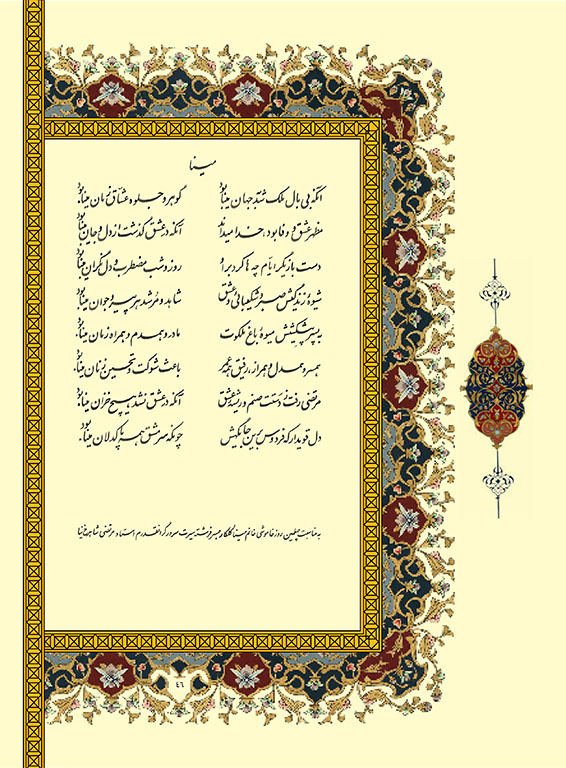 مینا
آنکه بی بال ملک شد به جهان مینا بود
گوهر و جلوه عشاق زمان مینا بود
مظهر عشق و وفا بود، خدا میداند
آنکه در عشق گذشت از دل و جان مینا بود
دست بازیگر ایام چه ها کرد بر او
روز و شب مضطرب و دل نگران مینا بود
شیوه زندگیش صبر و شکیبائی و عشق
شاهد و مرشد هر پیر و جوان مینا بود
پیشکشش میوه باغ ملکوت
مادر و همدم و همراه زمان مینا بود
همسر و همدل و همراز، رفیق همه عمر
باعث شوکت و تحسین زنان مینا بود
مرتضی رفت ز دستت صنم و عشق
آنکه در عشق نشد هیچ خزان مینا بود
دل قوی دار که فردوس برین جایگهش
چونکه سرمشق همه پاکدلان مینا بود.
به مناسبت چهلمین روز خاموشی خانم مینا گلکار همسر فرشته سیرت سرور گرانقدرم استاد مرتضی
٤٦